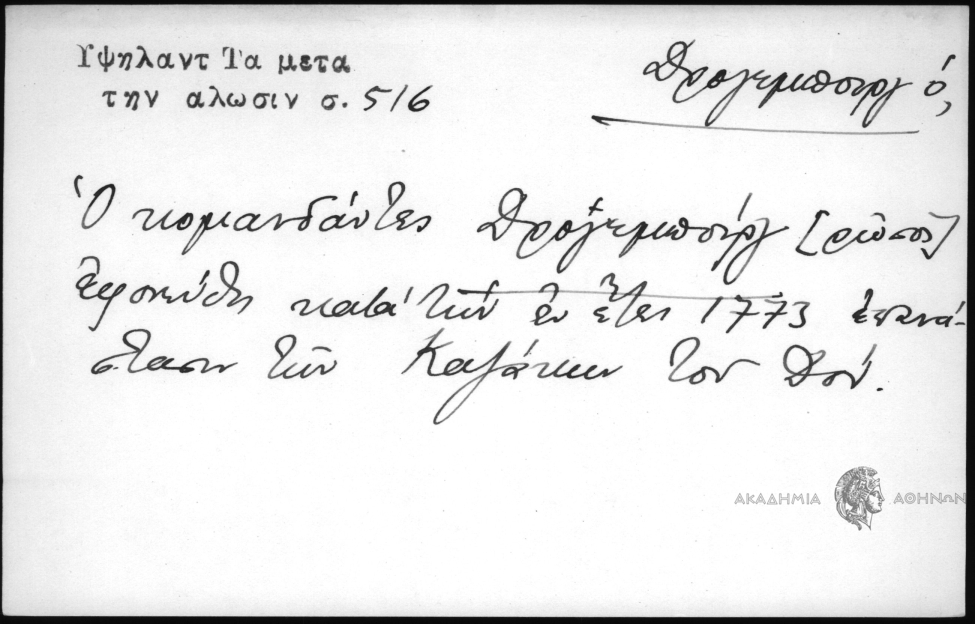 Υψηλαντ Τα μετα
την αλωσιν σ. 516
Δρογεμπουργ ὁ,
Ὁ κομανδάντες Δρόγεμπούργ [ρῶσος]
ἐφονεύθη κατά τήν ἐν ἔτει 1773 ἐπανά-
στασιν τῶν Καζάκων τοῦ Δόν.
ΑΚΑΔΗΜΙΑ ΑΘΗΝΩΝ